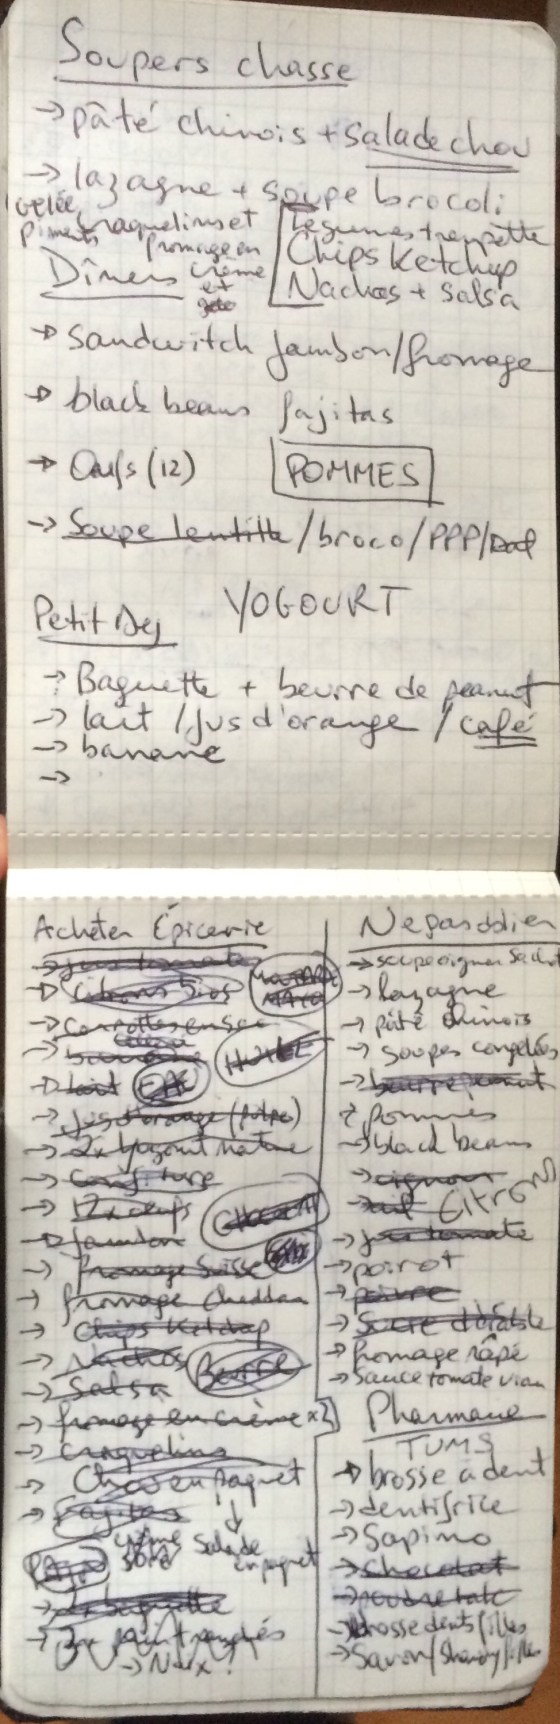 Soupers chasse
→ pâté chinois + salade chou
→ lazagne + soupe brocoli
Gelée piments
craquelins et fromage en crème et
Légumes trempette
Chips Ketchup
Nachos + Salsa
Dîners
→ Sandwitch jambon/fromage
→ black beans fajitas
→ Oeufs (12)
POMMES
→ Soupe lentille / broco / PPP / Dal
Petit Dej
YOGOURT
→ Baguette + beurre de peanut
→ lait / jus d'orange / café
→ banane
→
Acheter Épicerie
→ jus tomate
→ Citrons bios
→ Carottes
→
→ lait
HUILE
→ Jus d'orange (pulpe)
→ 2x Yogourt nature
→ Confiture
→ 12 oeufs
→ jambon
→ fromage Suisse
→ fromage cheddar
→ Chips Ketchup
→ Nachos
Beurre
→ Salsa
→ fromage en crème x2
→ craquelins
→ Chou en paquet
↓
Salade en paquet
→ Fajitas
crème sure
→ 2x baguette
→ pain tranchés
→ Noix?
Ne pas oublier
→ soupe oignon sachet
→ lazagne
→ pâté chinois
→ soupes congelées
→ beurre peanut
→ pommes
→ black beans
→ oignon
→ CITRONS
→ jus tomate
→ poirot
→ poivre
→ Sucre d'érable
→ fromage râpé
→ Sauce tomate vian
Pharmacie
TUMS
→ brosse à dent
→ dentifrice
→ Sapino
→ Chocolat
→ poudre talc
→ brosse dents filles
→ Savon/